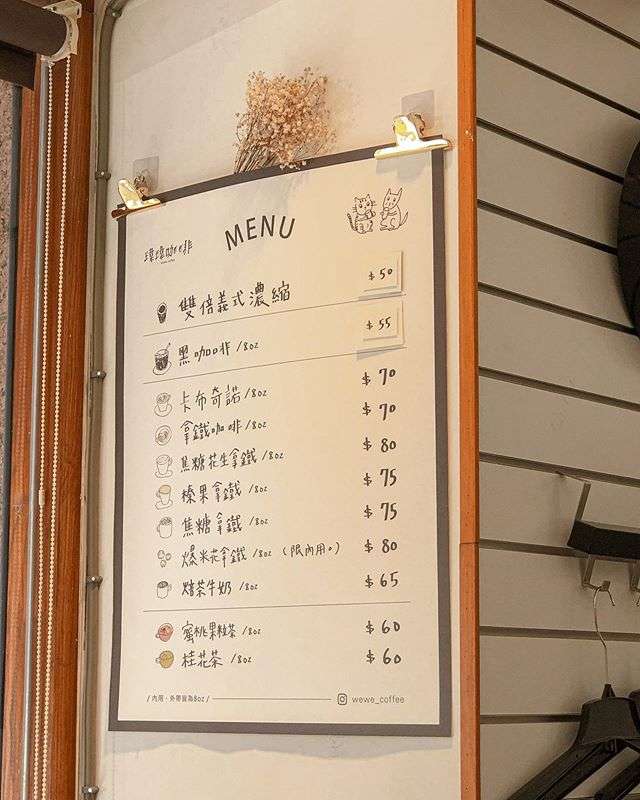 MENU
雙倍義式濃縮 $50
黑咖啡 /8oz $55
卡布奇諾 /8oz $70
拿鐵咖啡 /8oz $70
焦糖花生拿鐵 /8oz $80
榛果拿鐵 /8oz $75
焦糖拿鐵 /8oz $75
爆米花拿鐵 /8oz (限內用。) $80
焙茶牛奶 /8oz $65
蜜桃果粒茶 /8oz $60
桂花茶 /8oz $60
/ 內用、外帶皆為8oz /
wewe_coffee